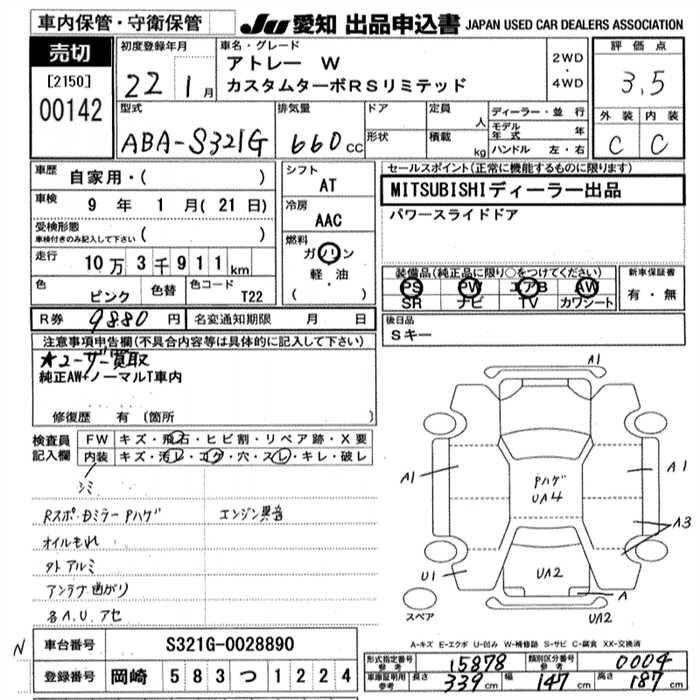 車内保管・守衛保管 JU 愛知 出品申込書 JAPAN USED CAR DEALERS ASSOCIATION
売切
[2150]
00142
初度登録年月
22 1月
車名・グレード
アトレー W
カスタムターボRSリミテッド
2WD
・
4WD
評価点
3,5
外装 内装
C C
型式
ABA-S321G
排気量
660cc
ドア
形状
定員 人
積載 kg
ディーラー・並行
モデル年式 年
ハンドル 左・右
車歴
自家用・( )
車検
9 年 1 月( 21 日)
受検形態
車検付きのみ記入して下さい ( )
走行
10万3千911km
色
ピンク
色替
色コード
T22
シフト
AT
冷房
AAC
燃料
ガソリン
軽・油
( )
セールスポイント(正常に機能するものに限ります)
MITSUBISHIディーラー出品
パワースライドドア
装備品(純正品に限り○をつけてください)
PS PW エアB AW
SR ナビ TV カワシート
新車保証書
有・無
R券 9880円 名変通知期限 月 日
後日品
Sキー
注意事項申告欄(不具合内容等は具体的に記入して下さい)
★ユーザー買取
純正AW+ノーマルT車内
修復歴 有 (箇所
検査員
記入欄
FW キズ・飛石・ヒビ割・リペア跡・X要
内装 キズ・汚レ・コゲ・穴・スレ・キレ・破レ
シミ
Rスポ・Dミラー Pハゲ エンジン異音
オイルもれ
タトアルミ
アンテナ曲がり
各A.U.アセ
A1
A1
A1
Pハゲ
UA4
A3
U1
UA2
A
UA2
スペア
A-キズ E-エクボ U-凹み W-補修跡 S-サビ C-腐食 XX-交換済
N
車台番号 S321G-0028890
登録番号 岡崎 583 つ 1224
形式指定番号 参考 15878 類別区分番号 参考 0004
車庫証明用 参考 長さ 339cm 幅 147cm 高さ 187cm